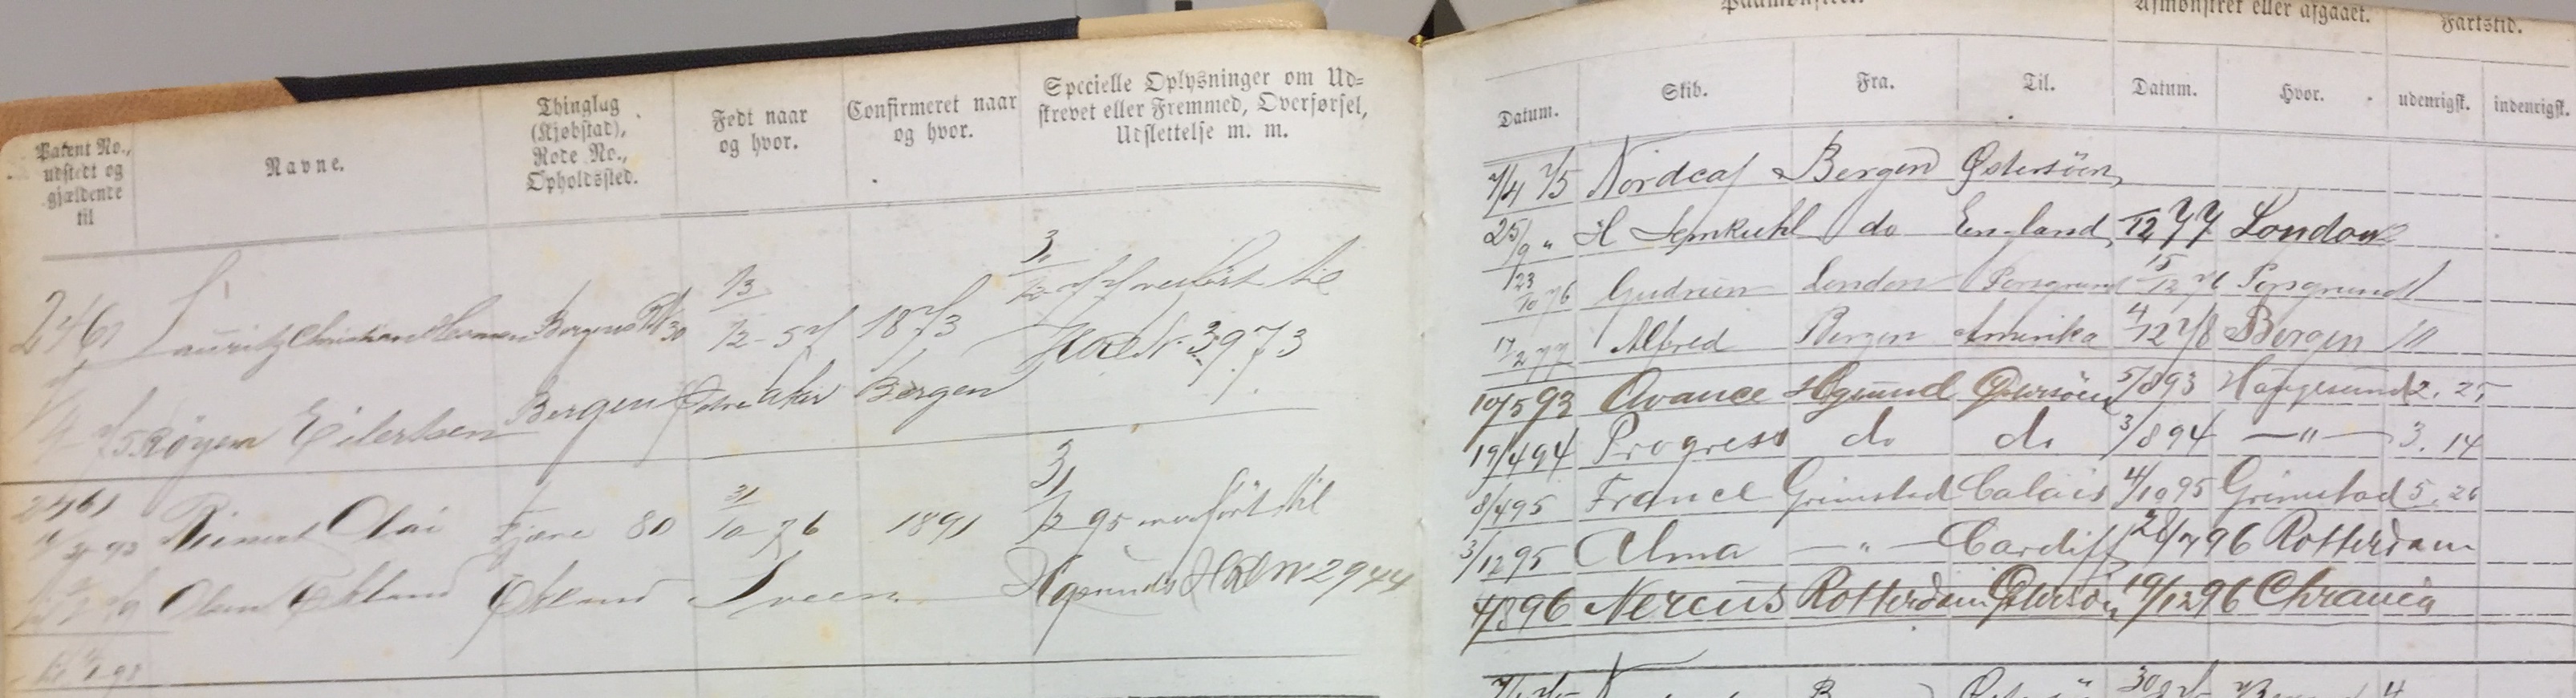 Patent No.,
udstedt og
gjældende
til
Navne.
Thinglag
(Kjøbstad),
Rode No.,
Opholdssted.
Født naar
og hvor.
Confirmeret naar
og hvor.
Specielle Oplysninger om Ud=
skrevet eller Fremmed, Overførsel,
Udslettelse m. m.
2461 Lauritz Christian Herman Bergens 30 13/12-57 1873 3/12 77 overført til
HovedNr 3973
Røyem Eilertsen Bergen Østre Aker Bergen
2461
Reinert Olai Fjære 80 31/10-76 1891 3/12 95 overført til
Olsen Økland Økland Sveen Hgsunds HRN 2944
Paamønstret.
Afmønstret eller afgaaet.
Fartstid.
Datum. Skib. Fra. Til. Datum. Hvor. udenrigsk. indenrigsk.
7/4 75 Nordcap Bergen Østersöen
25/9 " H Lemkuhl do England 1/12 77 London
23/10 76 Gudrun London Porsgrund 15/12 76 Porsgrund
17/2 77 Alfred Bergen Amerika 4/12 78 Bergen
10/5 93 Avance Hgsund Østersöen 5/8 93 Haugesund 2. 25
19/4 94 Progress do do 3/8 94 —"— 3. 14
8/4 95 France Grimstad Calais 4/10 95 Grimstad 5. 26
3/12 95 Alma —"— Cardiff 28/7 96 Rotterdam
4/8 96 Nereus Rotterdam Østersön 19/12 96 Chrania